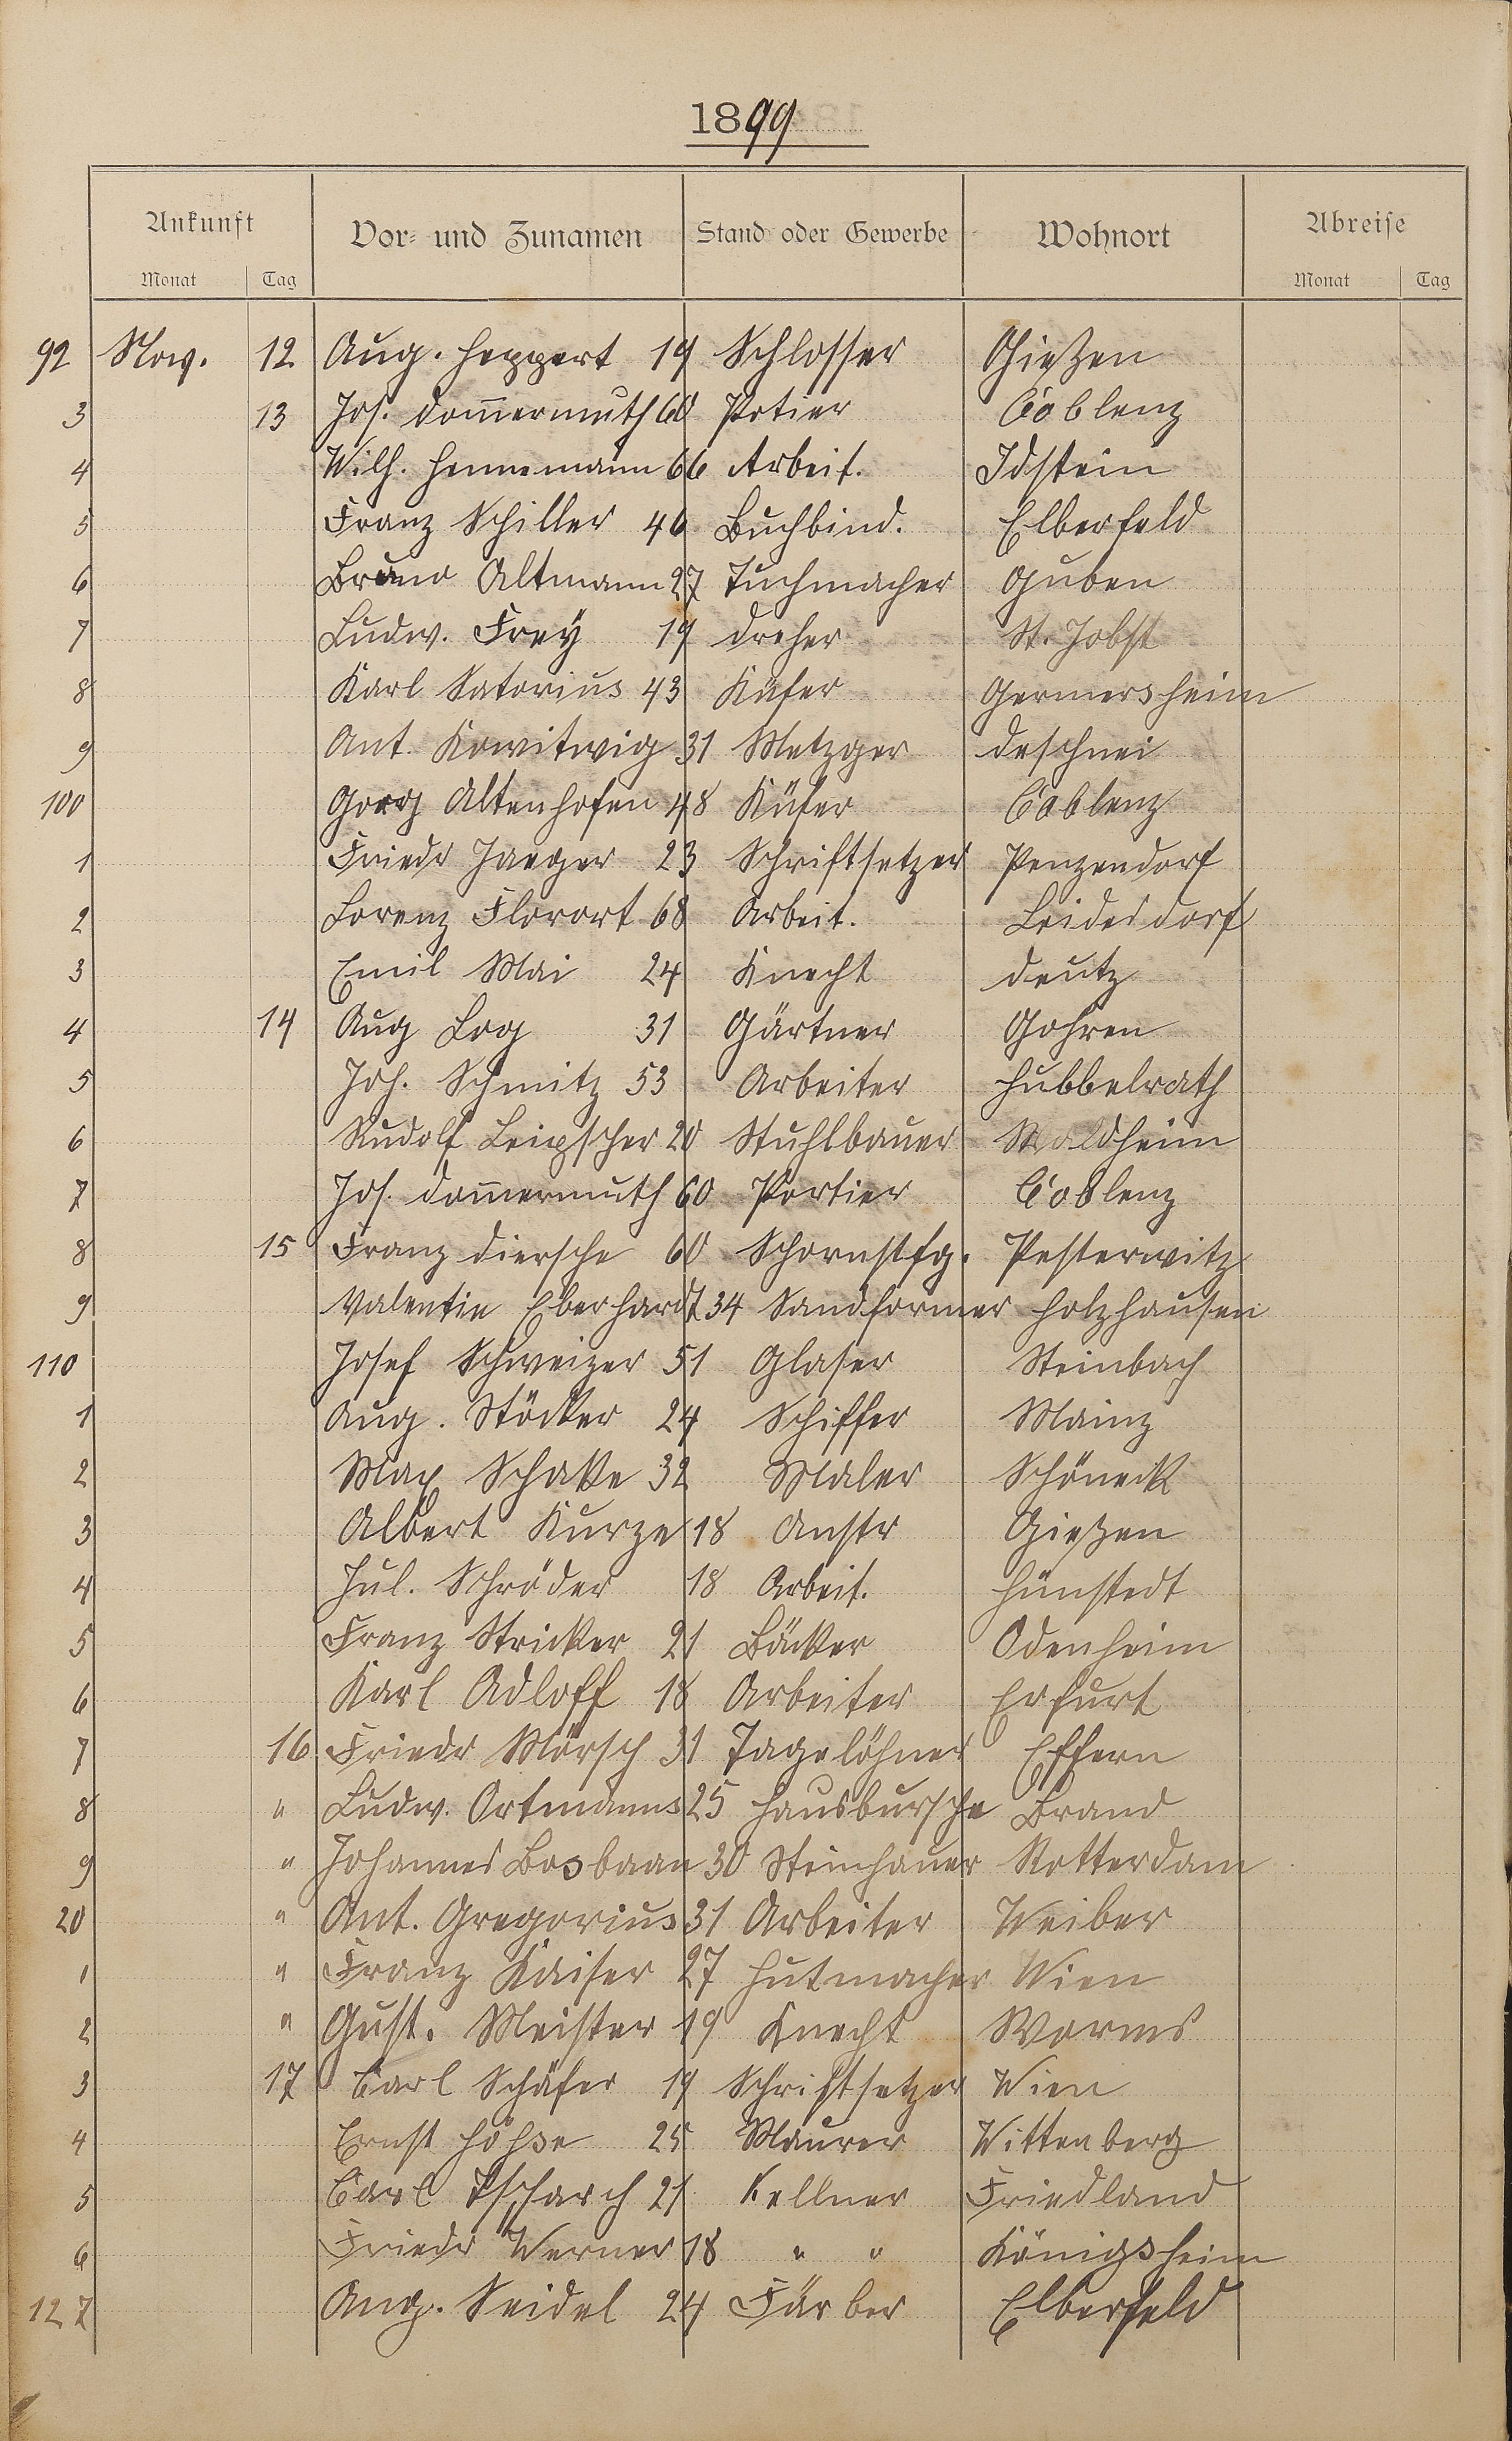 1899
Ankunft Vor- und Zunamen Stand oder Gewerbe Wohnort Abreise
Monat Tag Monat Tag
92 Nov. 12 Aug. Heppert 19 Schlosser Gießen
3 13 Jos. Dom̅ermuth 60 Potier Coblenz
4 Wilh. Hennemann 66 Arbeit. Idstein
5 Franz Schiller 46 Buchbind. Elberfeld
6 Bruno Altmann 27 Tuchmacher Guben
7 Ludw. Frey 19 Dreher St. Jobst
8 Karl Satorius 43 Küfer Germersheim
9 Ant. Kowitwig 31 Metzger Deschnei
100 Georg Altenhofen 48 Küfer Coblenz
1 Friedr Jaeger 23 Schriftsetzer Penzendorf
2 Lorenz Florort 68 Arbeit. Leidesdorf
3 Emil Mai 24 Knecht Deutz
4 14 Aug Log 31 Gärtner Gohren
5 Joh. Schmitz 53 Arbeiter Hubbelrath
6 Rudolf Leipscher 20 Stuhlbauer Waldheim
7 Jos. Dom̅ermuth 60 Portier Coblenz
8 15 Franz Diersche 60 Schornstfg. Pesterwitz
9 Valentin Eberhardt 34 Sandformer Holzhausen
110 Josef Schweizer 51 Glaser Steinbach
1 Aug. Stöcker 24 Schiffer Mainz
2 Max Schakke 32 Maler Schöneck
3 Albert Kurze 18 Anstr Gießen
4 Jul. Schröder 18 Arbeit. Hünstedt
5 Franz Stricker 21 Bäcker Odenheim
6 Karl Adloff 18 Arbeiter Erfurt
7 16 Friedr Mörsch 31 Tagelöhner Effern
8 " Ludw. Ortmanns 25 Hausbursche Brand
9 " Johannes Bosbaan 30 Steinhauer Rotterdam
20 " Ant. Gregorius 31 Arbeiter Weiber
1 " Franz Kaiser 27 Hutmacher Wien
2 " Gust. Meister 19 Knecht Worms
3 17 Carl Schäfer 19 Schriftsetzer Wien
4 Ernst Höhse 25 Maurer Wittenberg
5 Carl Tscharch 21 Kellner Friedland
6 Friedr Werner 18 " " Königsheim
127 Aug. Seidel 24 Färber Elberfeld